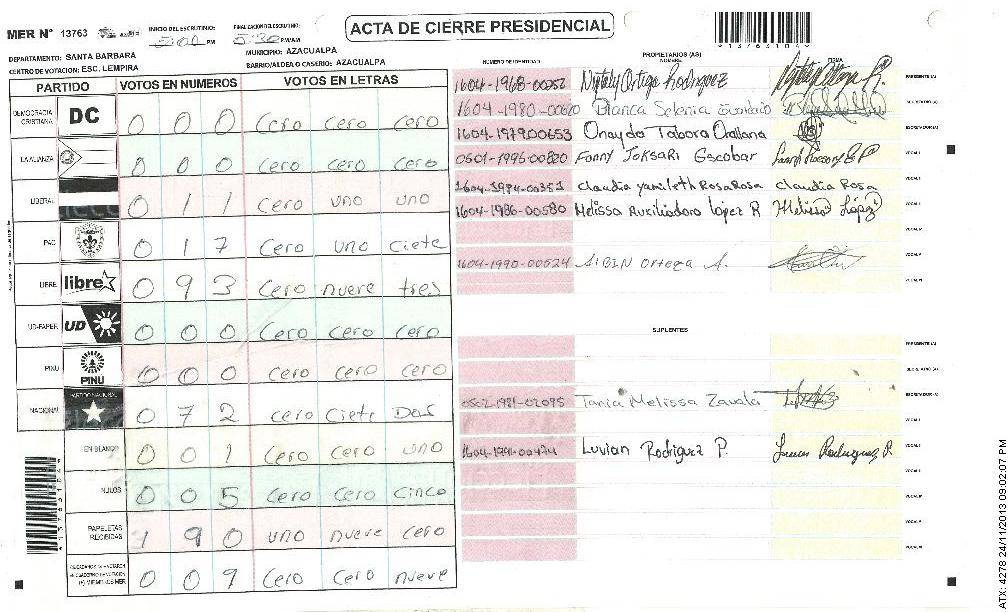 ACTA DE CIERRE PRESIDENCIAL
MER N° 13763
INICIO DEL ESCRUTINIO: 5:00 PM
FINALIZACION DEL ESCRUTINIO: 5:30 PM/AM
*13763104*
DEPARTAMENTO: SANTA BARBARA
MUNICIPIO: AZACUALPA
CENTRO DE VOTACION: ESC. LEMPIRA
BARRIO/ALDEA O CASERIO: AZACUALPA
PARTIDO VOTOS EN NUMEROS VOTOS EN LETRAS
DEMOCRACIA CRISTIANA DC 0 0 0 cero cero cero
LA ALIANZA 0 0 0 cero cero cero
LIBERAL 0 1 1 cero uno uno
PAC 0 1 7 cero uno ciete
LIBRE libre 0 9 3 cero nueve tres
UD-FAPER UD 0 0 0 cero cero cero
PINU PINU 0 0 0 cero cero cero
NACIONAL PARTIDO NACIONAL 0 7 2 cero ciete Dos
EN BLANCO 0 0 1 cero cero uno
NULOS 0 0 5 cero cero cinco
PAPELETAS RECIBIDAS 1 9 0 uno nueve cero
0 0 9 cero cero nueve
PROPIETARIOS (AS)
NUMERO DE IDENTIDAD NOMBRE FIRMA
1604-1968-00252 Nytaly Ortega Rodriguez PRESIDENTE (A)
1604-1980-00620 Blanca Selenia SECRETARIO (A)
1604-1979-00653 Onayda Tabora Orellana ESCRUTADOR (A)
0501-1996-00820 Fanny Joksari Escobar VOCAL I
1604-1984-00351 Claudia yamileth Rosa Rosa Claudia Rosa
1604-1986-00580 Melissa Auxiliadora lopez R Melissa López
1604-1990-00624 AlBIN Ortega A.
SUPLENTES
PRESIDENTE (A)
SECRETARIO (A)
0502-1981-02095 Tania Melissa Zavala ESCRUTADOR (A)
1604-1991-00474 Luvian Rodriguez P. Rodriguez P. VOCAL I
ATX: 4278 24/11/2013 09:02:07 PM